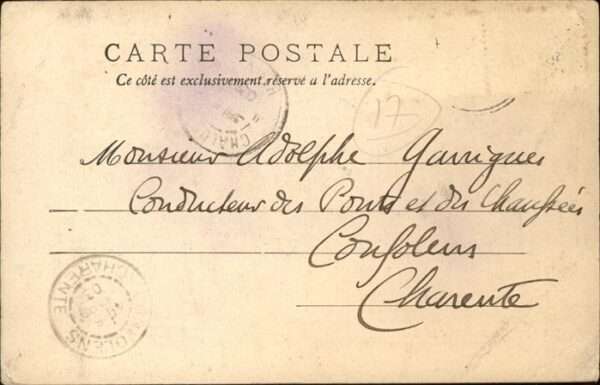 CARTE POSTALE
Ce côté est exclusivement réservé a l'adresse.
17
Monsieur Adolphe Garrigues
Conducteur des Ponts et des Chaussées
Confolens
Charente
CONFOLENS
CHARENTE